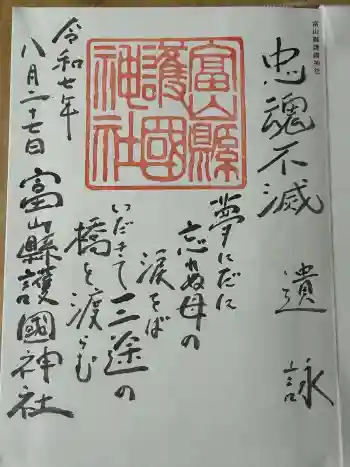 富山縣護國神社
忠魂不滅
遺詠
富山縣護國神社
夢にだに
忘れぬ母の
涙をば
いだきて三途の
橋を渡らむ
令和七年
八月二十七日
富山縣護國神社